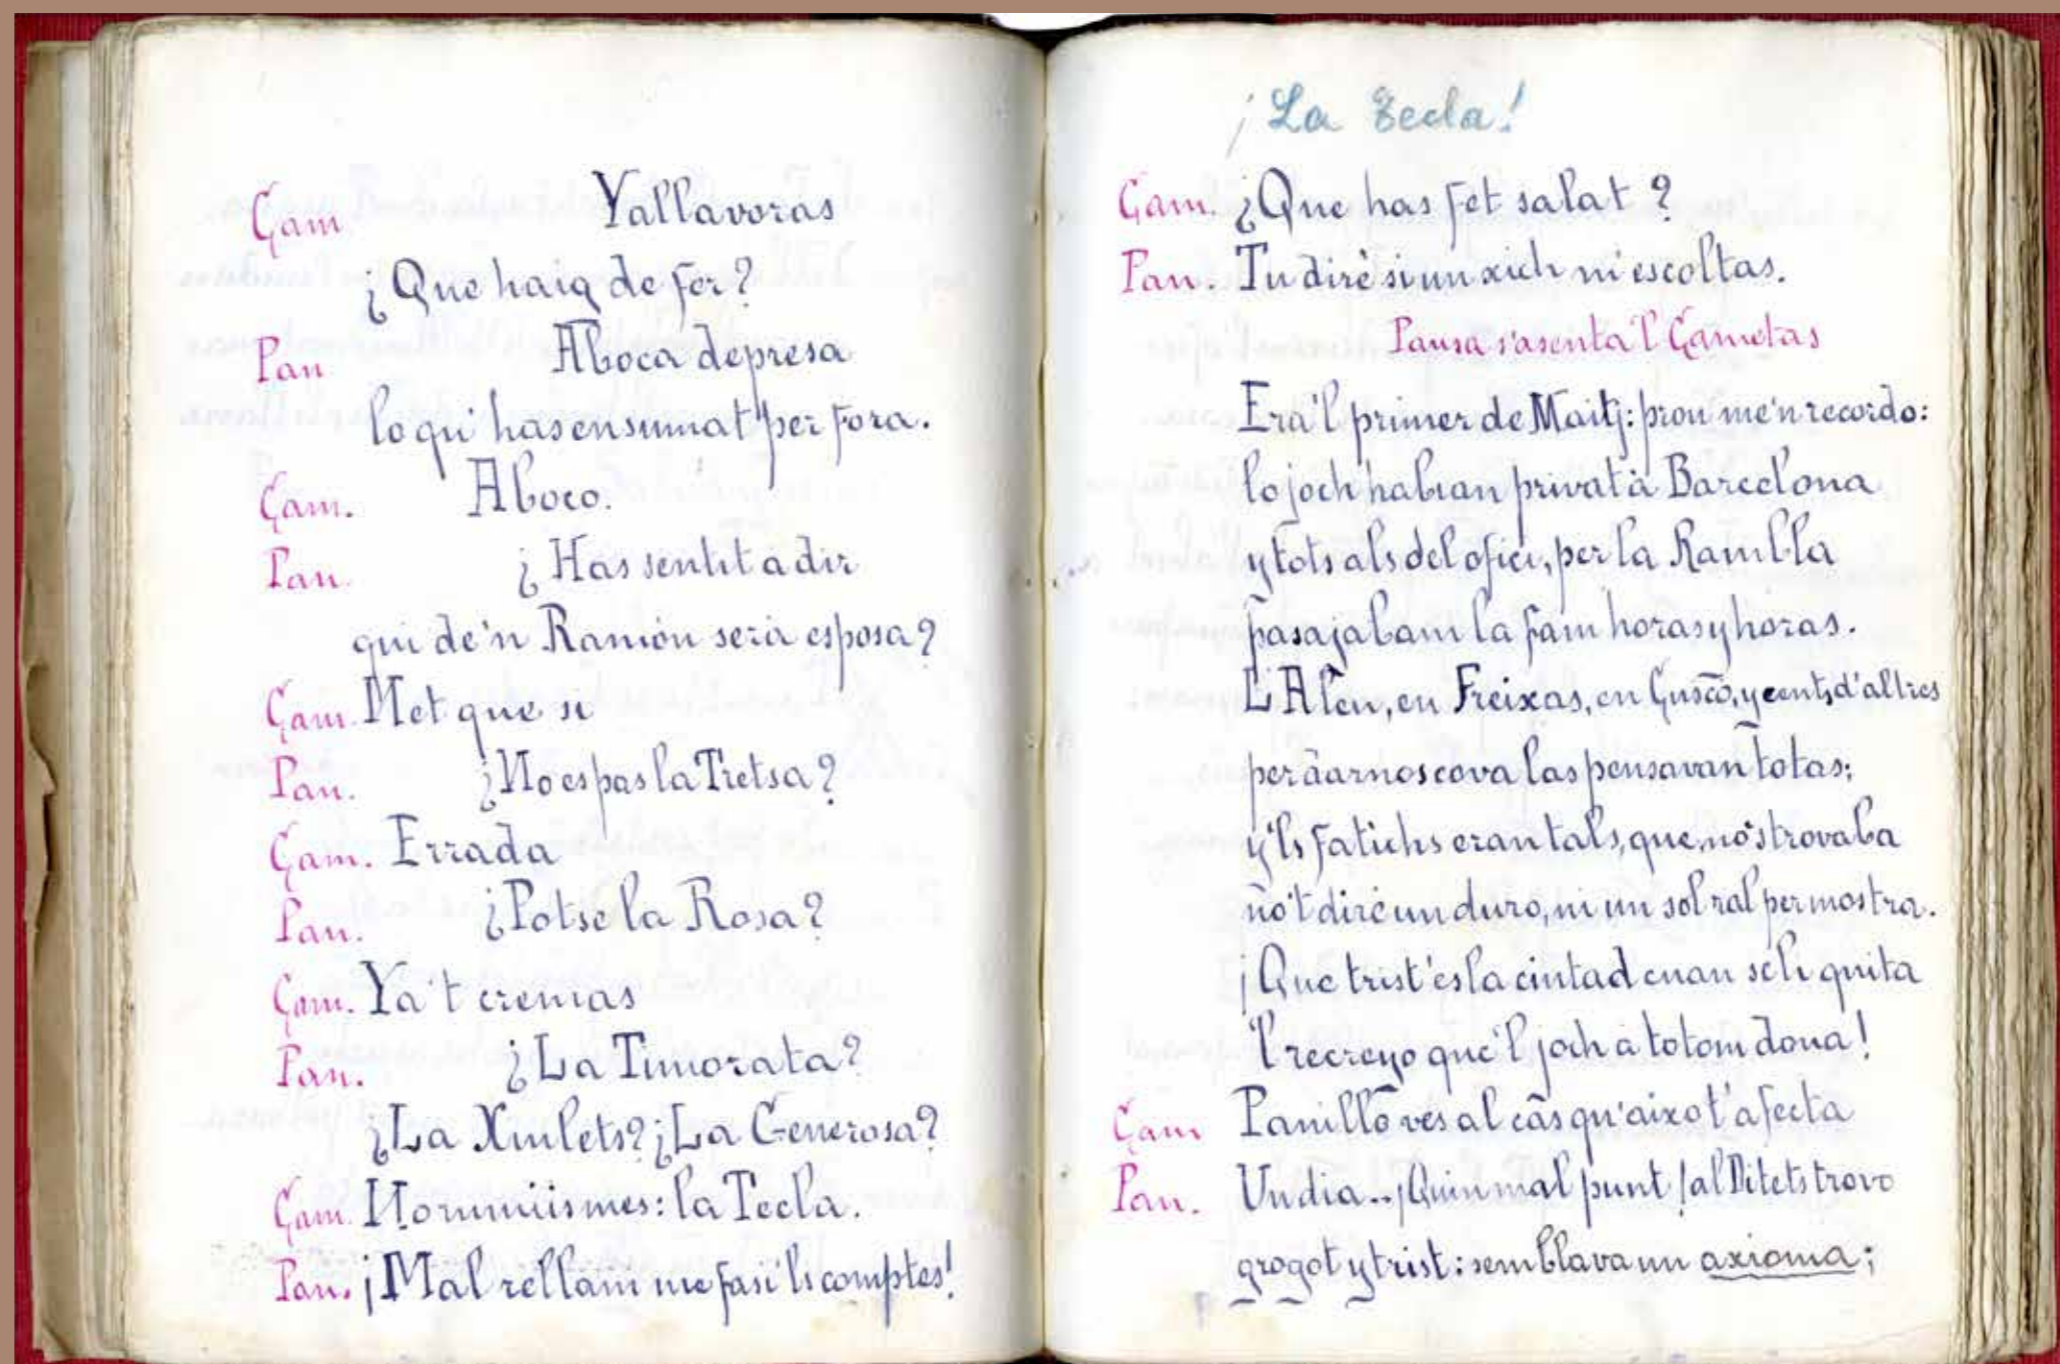 Gam Y allavoras
¿Que haig de fer?
Pan Aboca depresa
lo qu' has ensumat per fora.
Gam. Aboco.
Pan. ¿Has sentit a dir
qui de'n Ramón serà esposa?
Gam. Met que si
Pan. ¿No es pas la Tretsa?
Gam. Errada
Pan. ¿Potse la Rosa?
Gam. Ya't cremas
Pan. ¿La Timorata?
¿La Xinlets? ¿La Generosa?
Gam. No rumiis mes: la Tecla.
Pan. ¡Mal rellam me fasi'ls comptes!
¡La Tecla!
Gam. ¿Que has fet salat?
Pan. Tu diré si un xich m'escoltas.
Pausa s'asenta'l Gametas
Era'l primer de Maitj: prou me'n recordo:
lo joch habian privat à Barcelona
y tots als del ofici, per la Rambla
pasajabam la fam horas y horas.
L'Aleu, en Freixas, en Guscó, y cents d'altres
per darnos cova las pensavan totas;
y'ls fatichs eran tals, que, no's trovaba
no't diré un duro, ni un sol ral per mostra.
¡Que trist' és la ciutad cuan se li quita
'l recreyo que'l joch a totom dona!
Gam Panilló ves al cás qu'aixo t'afecta
Pan. Un dia... ¡Quin mal punt! al Pitets trovo
grogot y trist: semblava un axioma;